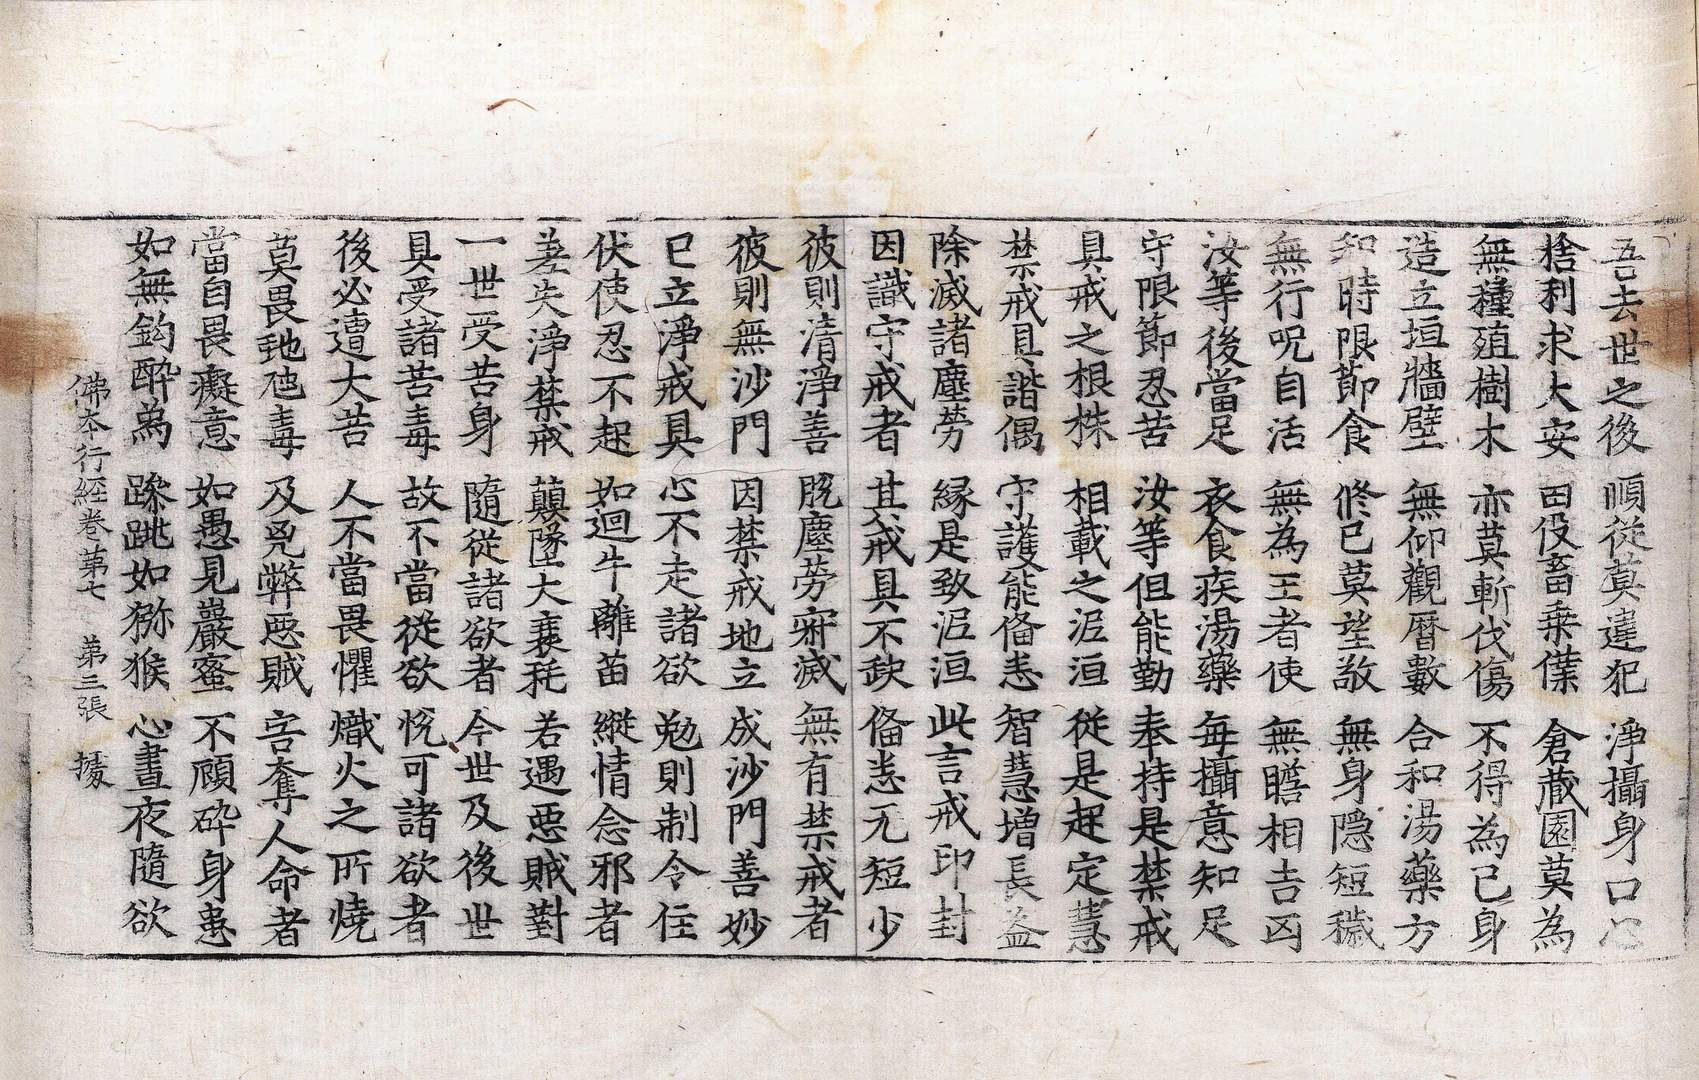 吾去世之後 順從莫違犯 淨攝身口心
捨利求大安 田役畜乗僕 倉蔵園莫為
無種殖樹木 亦莫斬伐傷 不得為己身
造立垣牆壁 無仰觀曆數 合和湯藥方
知時限節食 修己莫望敬 無身隱短穢
無行呪自活 無為王者使 無瞻相吉凶
汝等後當足 衣食疾湯藥 每攝意知足
守限節忍苦 汝等但能勤 奉持是禁戒
具戒之根株 相載之泥洹 從是起定慧
禁戒具諧偶 守護能俻恚 智慧增長益
除滅諸塵勞 縁是致泥洹 此言戒印封
因識守戒者 其戒具不缺 俻恚无短少
彼則清淨善 脫塵勞寂滅 無有禁戒者
彼則無沙門 因禁戒地立 成沙門善妙
已立淨戒具 心不走諸欲 勉則制令住
伏使忍不起 如迴牛離苗 縱情念邪者
差失淨禁戒 顛墜大衰耗 若遇惡賊對
一世受苦身 隨從諸欲者 今世及後世
具受諸苦毒 故不當從欲 恱可諸欲者
後必遭大苦 人不當畏懼 熾火之所燒
莫畏虵虺毒 及兇弊惡賊 害奪人命者
當自畏癡意 如愚見巖蜜 不顧碎身患
如無鈎醉為 跡跳如猕猴 心晝夜隨欲
佛本行經卷第七 第三張 據